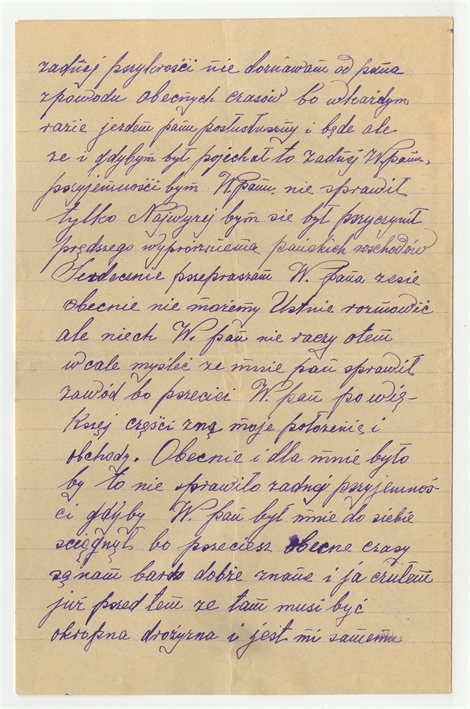 żadnej przykrości nie doznawam od pana
zpowodu obecnych czasów bo wkażdym
razie jezdem panu posłustuszny i będe ale
ze i gdybym był pojechał to żadnej W. Panu,
przyjemności bym W. Panu, nie sprawił
tylko Najwyzej bym sie był przyczynił
prędszego wypróżnienia pańskich rozchodów
Serdecznie przepraszam W. Pana ze sie
obecnie nie możemy Ustnie rozmówić
ale niech W. pań nie raczy otem
wcale myśleć ze mnie pań sprawił
zawód bo przecież W. pań po wię-
kszej części zną moje położenię i
obchody. Obecnie i dla mnie było
by to nie sprawiło zadnej przyjemnoś-
ci gdyby W. pań był mnie do siebie
ściągnął bo przeciesz obecne czasy
są nam bardz dobże znane i ja czułem
już przed tem ze tam musi być
okropna drożyzna i jest mi samemu